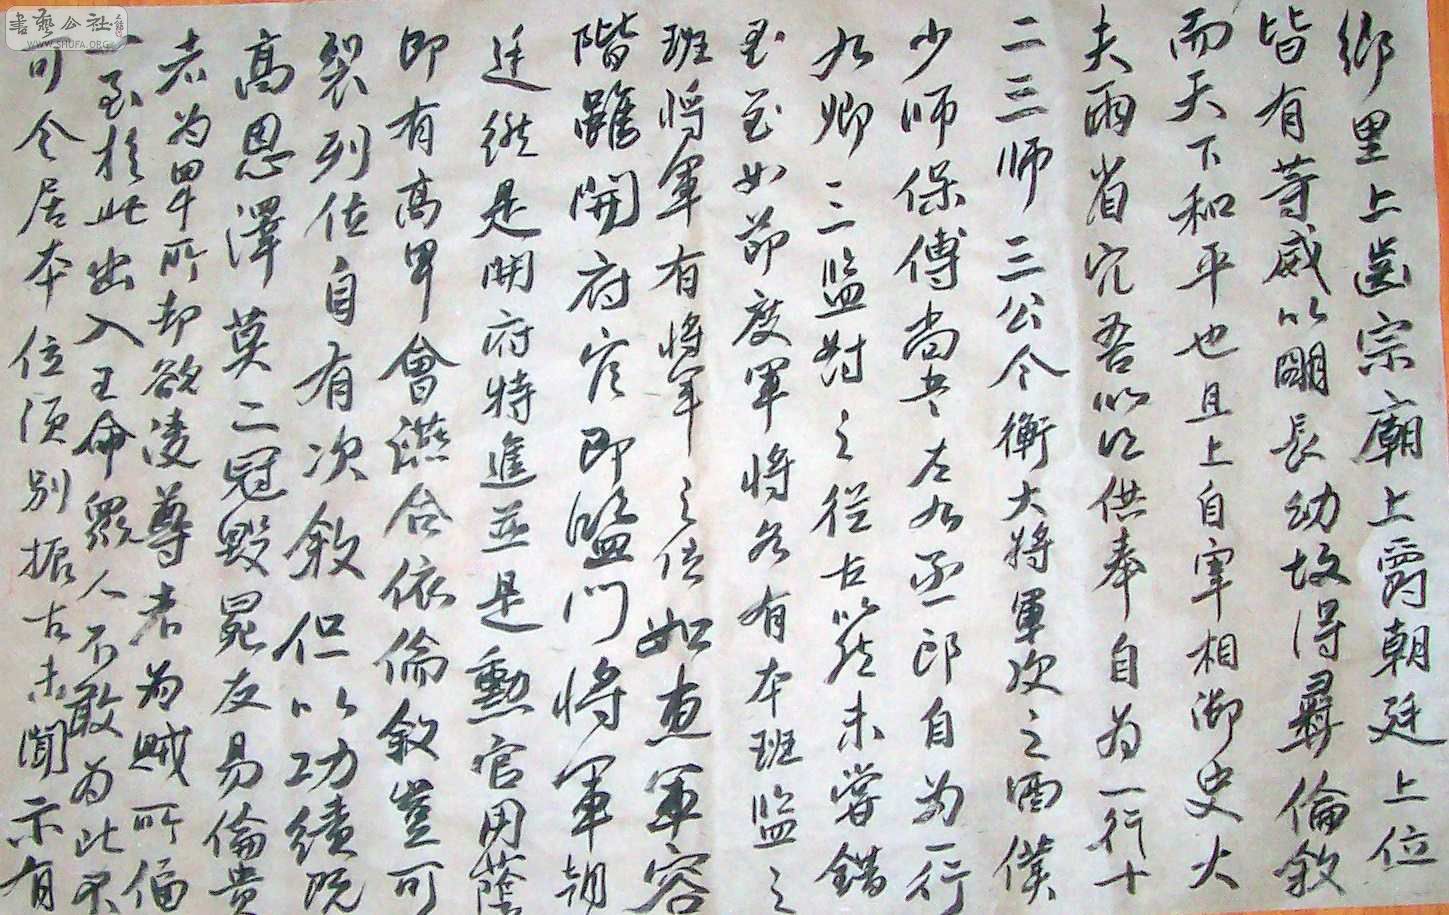 鄉里上齒宗廟上爵朝廷上位
皆有等威以明長幼故得彝倫敘
而天下和平也且上自宰相御史大
夫兩省五品以供奉自為一行十
二三師三公令僕
少師保傅尚書左右丞郎自為一行
九卿三監對之從古以然未嘗錯
至如節度軍將各有本班監
班將軍有將軍之位如魚軍容
階雖開府官即監門將軍朝
廷縱是開府特進並是勳官用蔭
即有高卑會讌合依倫敘豈可
裂列位自有次敘但以功績既
高恩澤莫二冠毀冕反易倫貴
者為卑所卻欲凌尊者為賊所偪
一至於此出入王命眾人不敢為此不
可令居本位須別振古未聞亦有
書藝公社
WWW.SHUFA.ORG